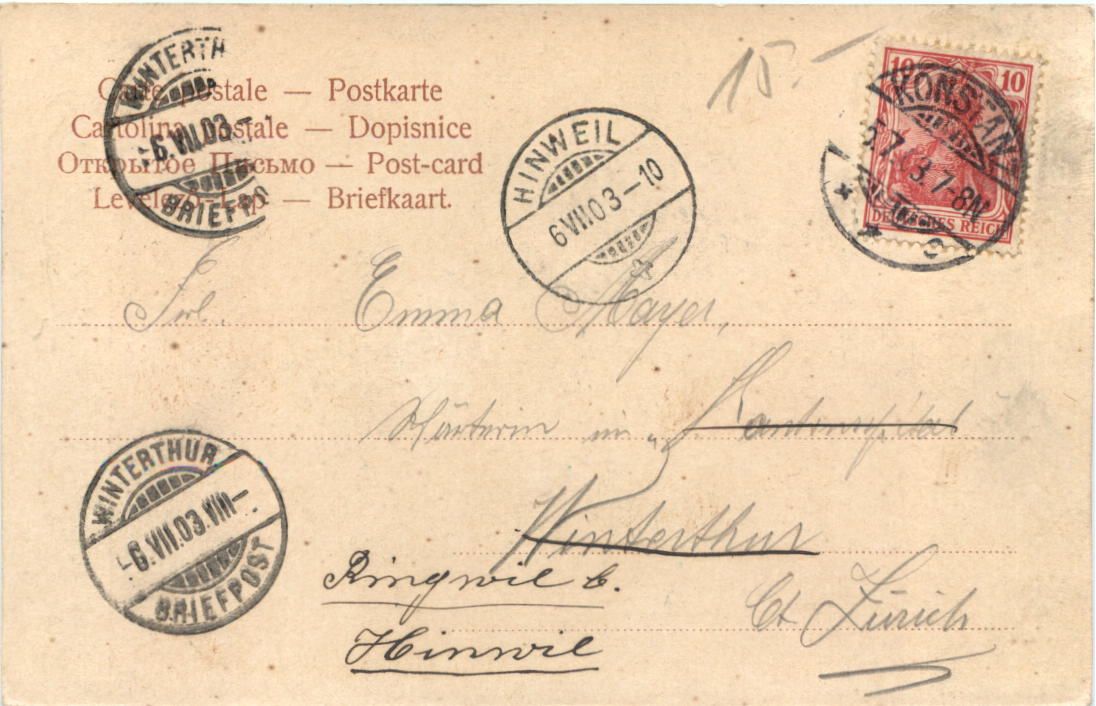 Carte postale — Postkarte
Cartolina postale — Dopisnice
Открытое Письмо — Post-card
— Briefkaart.
WINTERTH
-6.VII.03.-
BRIEFPO
HINWEIL
6 VII.03-10
15.-
10 10
DEUTSCHES REICH
KONSTAN
7-8N
Frl. Emma Mayer,
Wärterin im "Kantonspital
Winterthur
Ringwil b.
Hinwil
Ct Zürich
WINTERTHUR
-6.VII.03.VIII-
BRIEFPOST